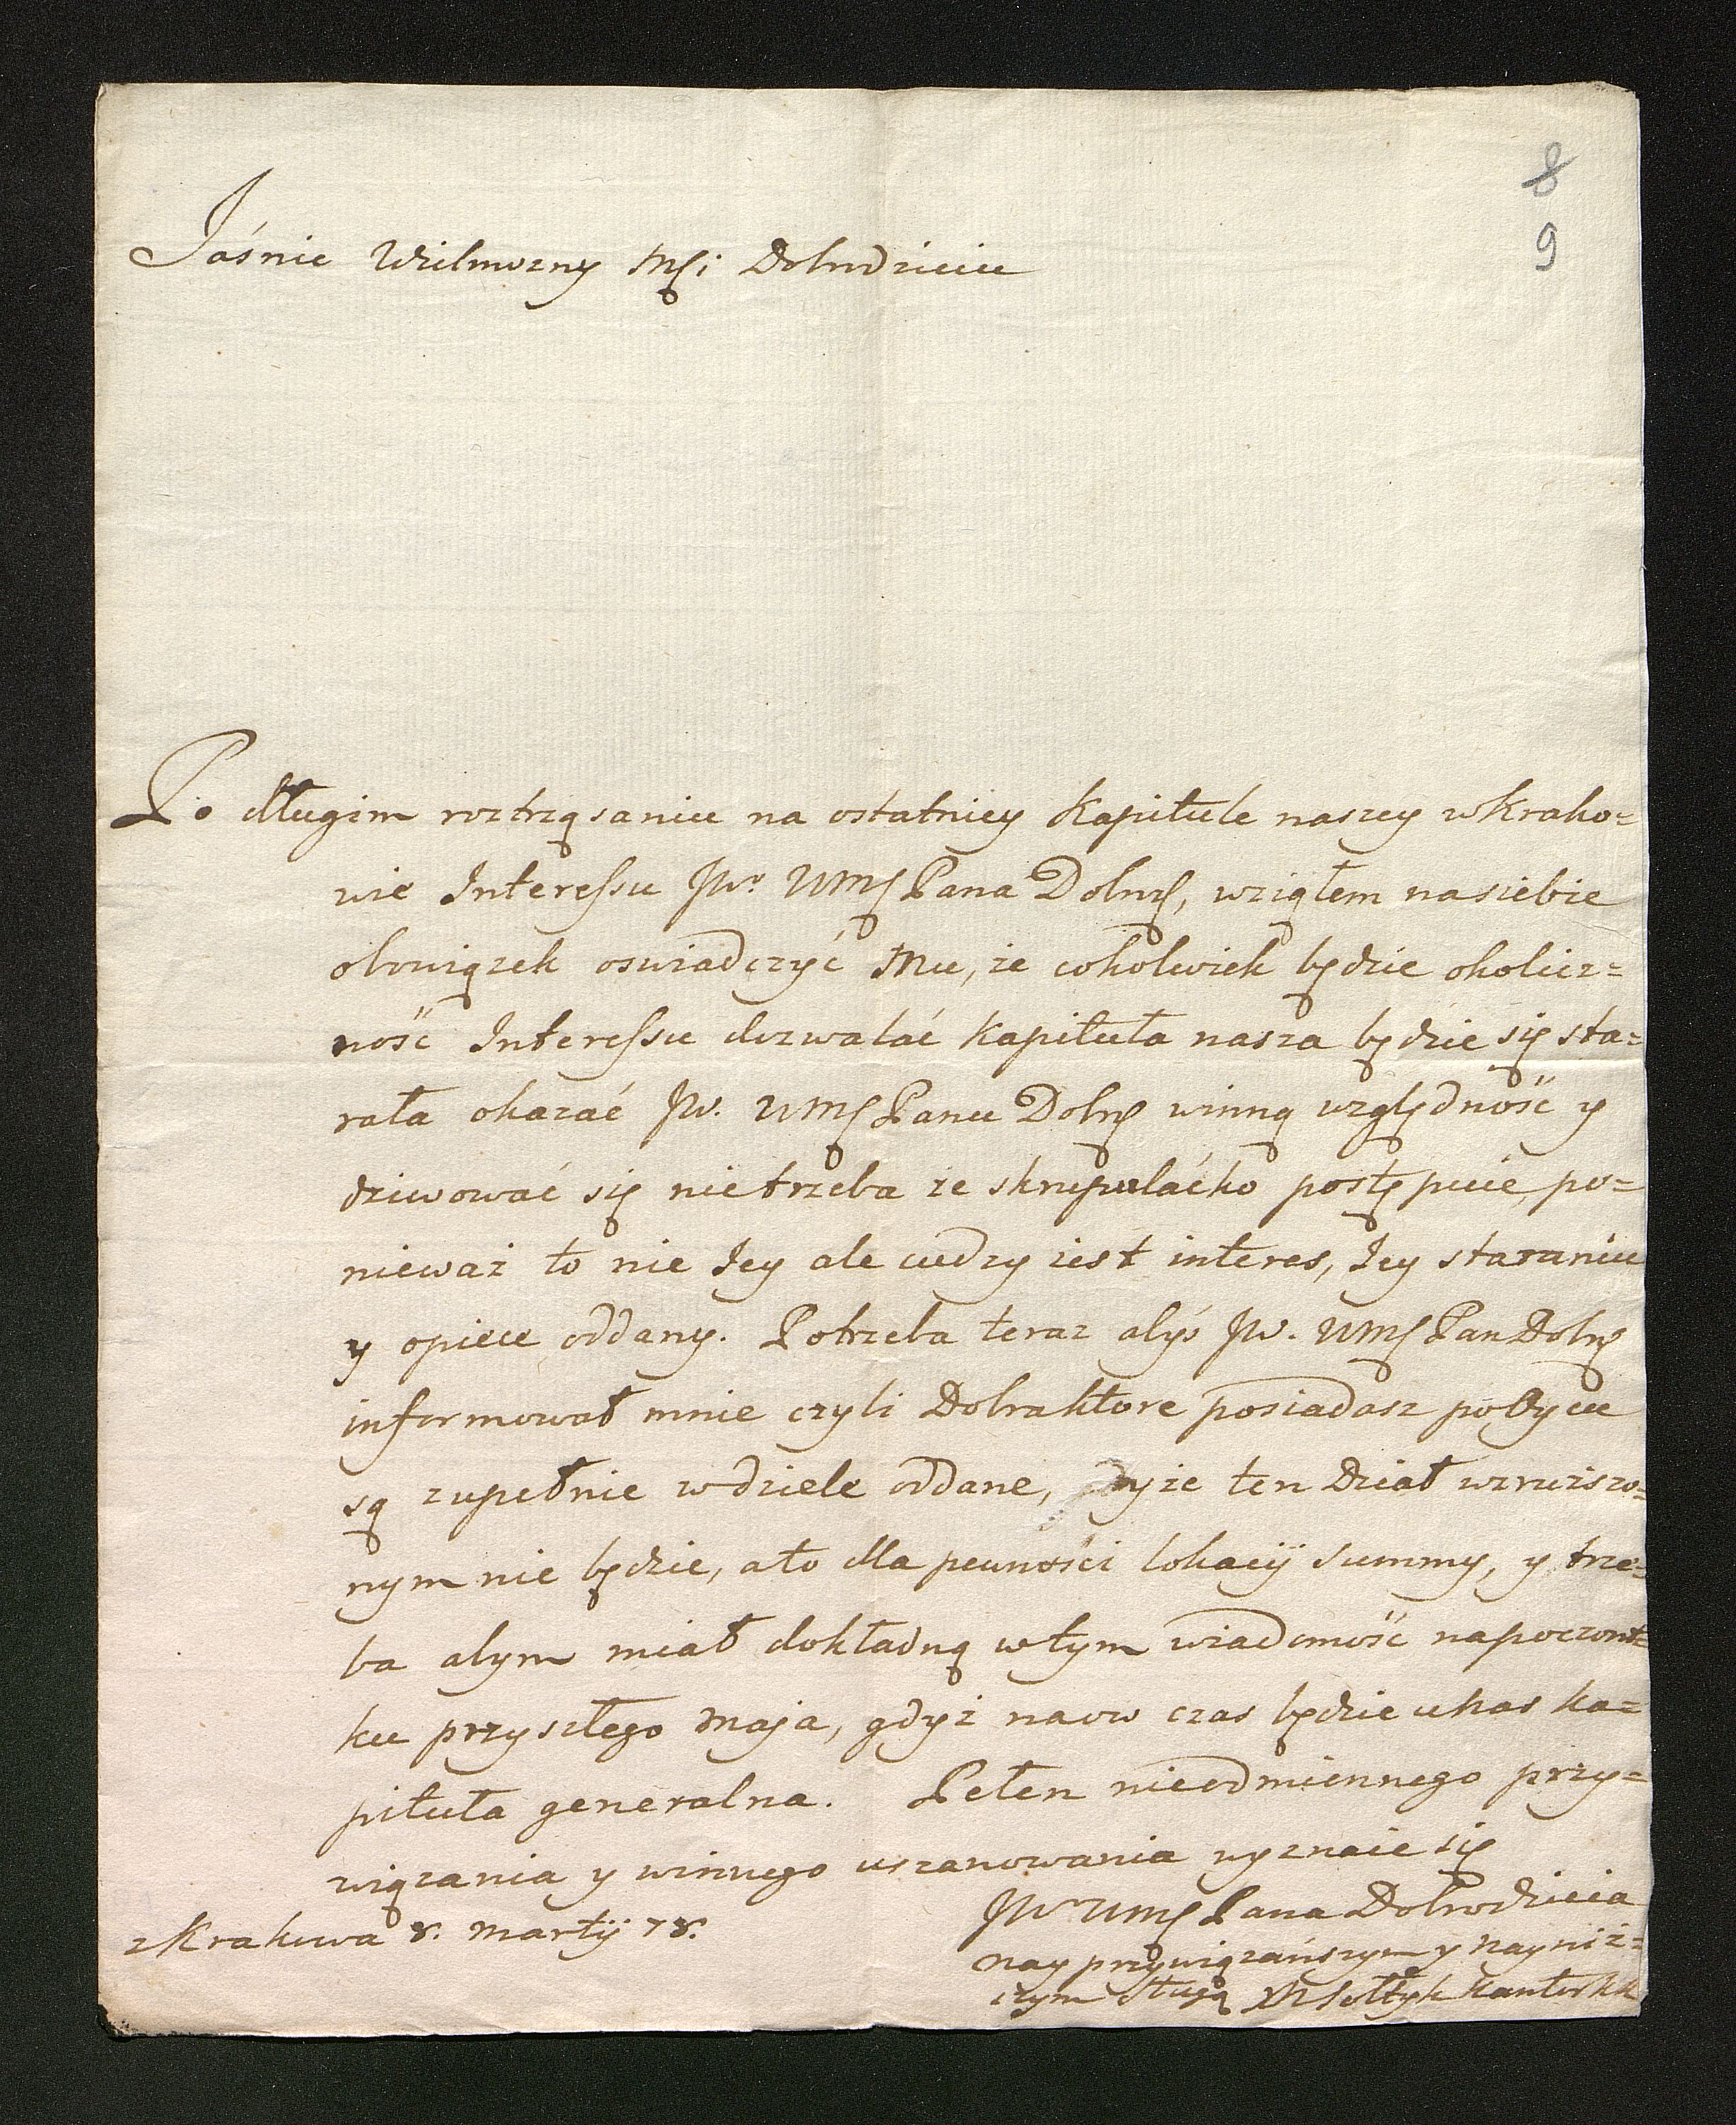 8
9
Jaśnie Wielmozny Mśi Dobrodzieiu
Po długim roztrząsaniu na ostatniey Kapitule naszey w Krako=
wie Interessu JWo WMś Pana Dobrś, wziąłem na siebie
obowiązek oswiadczyć Mu, że cokolwiek będzie okolicz=
ność Interessu dozwalać Kapituła nasza będzie się sta=
rała okazać JW. WMś Panu Dobrś winną względność y
dziwować się nie trzeba że skrupulaćko postępuie, po=
nieważ to nie Jey ale cudzy iest interes, Jey staraniu
y opiece oddany. Potrzeba teraz abyś JW. WMś Pan Dobrś
informował mnie czyli Dobra ktore posiadasz po Oycu
są zupełnie w dziele oddane, y że ten Dział wzruszo=
nym nie będzie, a to dla pewności lokacyi Summy, y trze=
ba abym miał dokładną w tym wiadomość na poczont=
ku przyszłego Maja, gdyż na ow czas będzie u nas Ka=
pituła generalna. Pełen nieodmiennego przy=
wiązania y winnego uszanowania wyznaie się
JWo WMś Pana Dobrodzieia
nayprzywiązańszym y nayniż=
szym sługą XM Sołtyk Kantor KK
z Krakowa 8. Martij 78.